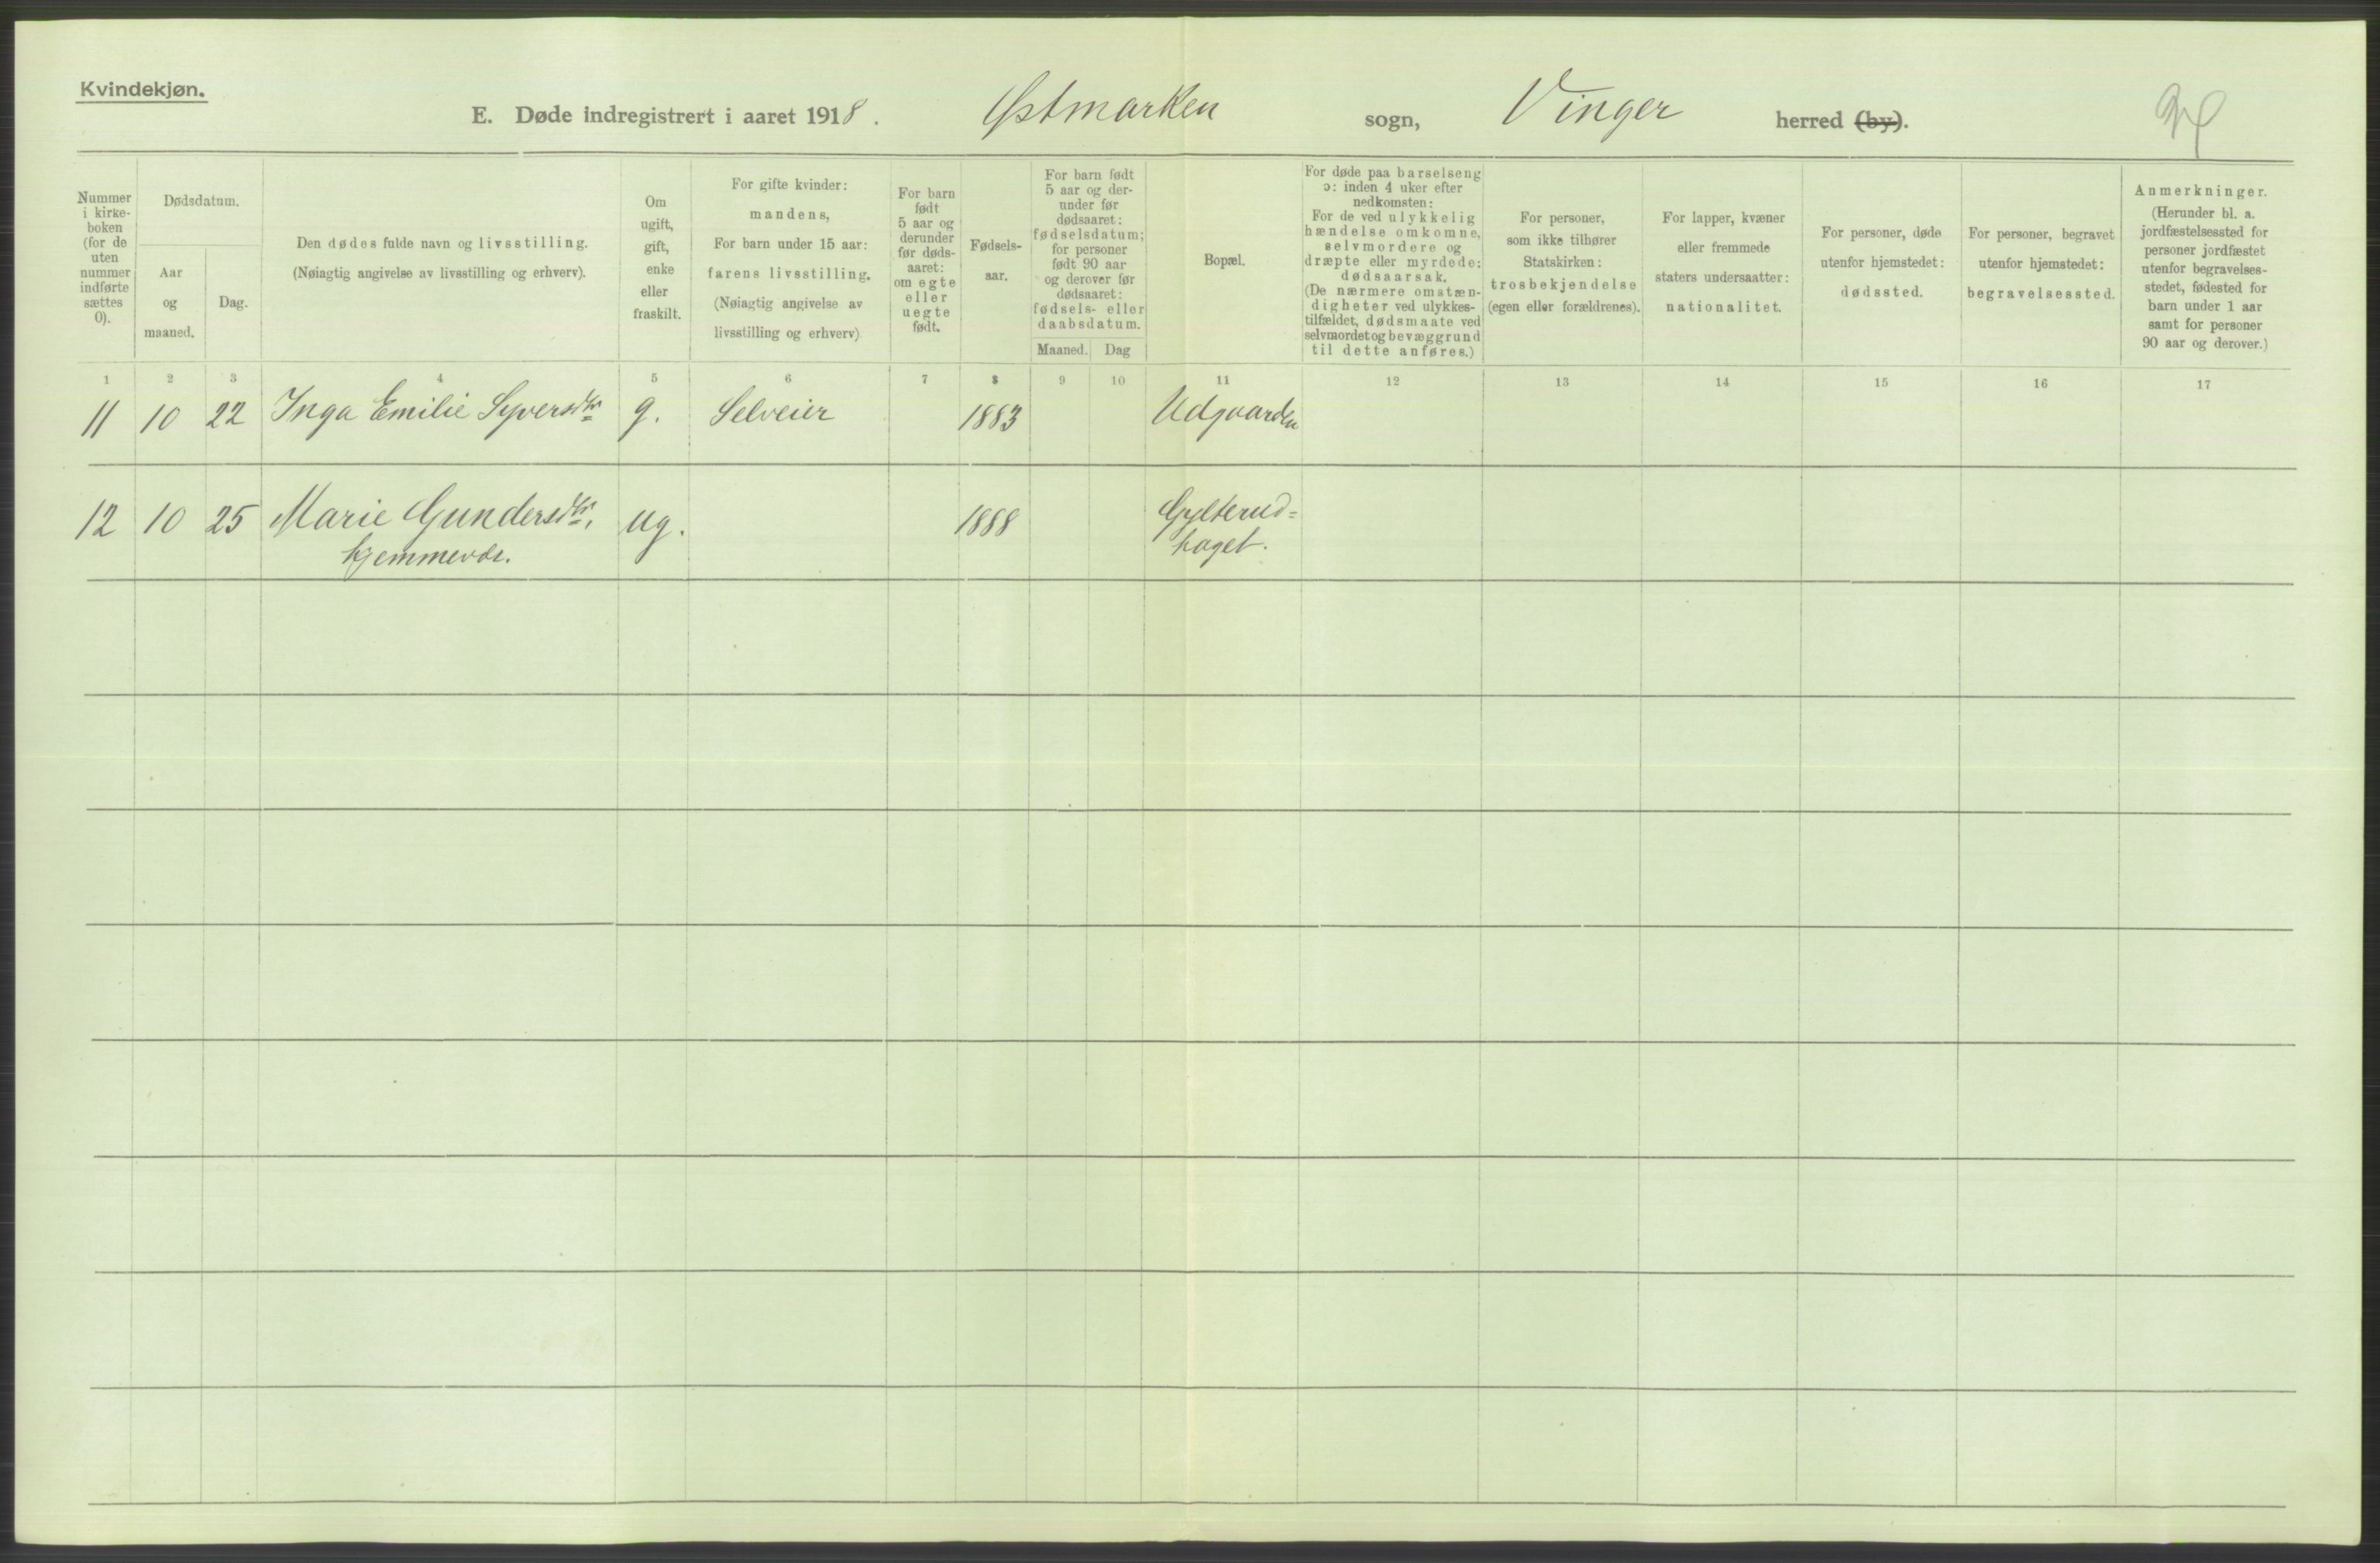 Kvindekjøn.
E. Døde indregistrert i aaret 1918. Østmarken sogn, Vinger herred (by).
Nummer
i kirke-
boken
(for de
uten
nummer
indførte
sættes
0).
Dødsdatum.
Aar
og
maaned.
Dag.
Den dødes fulde navn og livsstilling.
(Nøiagtig angivelse av livsstilling og erhverv).
Om
ugift,
gift,
enke
eller
fraskilt.
For gifte kvinder:
mandens,
For barn under 15 aar:
farens livsstilling.
(Nøiagtig angivelse av
livsstilling og erhverv)
For barn
født
5 aar og
derunder
før døds-
aaret:
om egte
eller
uegte
født.
Fødsels-
aar.
For barn født
5 aar og der-
under før
dødsaaret:
fødselsdatum;
for personer
født 90 aar
og derover før
dødsaaret:
fødsels- eller
daabsdatum.
Maaned. Dag
Bopæl.
For døde paa barselseng
ɔ: inden 4 uker efter
nedkomsten:
For de ved ulykkelig
hændelse omkomne,
selvmordere og
dræpte eller myrdede:
dødsaarsak.
(De nærmere omstæn-
digheter ved ulykkes-
tilfældet, dødsmaate ved
selvmordet og bevæggrund
til dette anføres.)
For personer,
som ikke tilhører
Statskirken:
trosbekjendelse
(egen eller forældrenes).
For lapper, kvæner
eller fremmede
staters undersaatter:
nationalitet.
For personer, døde
utenfor hjemstedet:
dødssted.
For personer, begravet
utenfor hjemstedet:
begravelsessted.
Anmerkninger.
(Herunder bl. a.
jordfæstelsessted for
personer jordfæstet
utenfor begravelses-
stedet, fødested for
barn under 1 aar
samt for personer
90 aar og derover.)
1 2 3 4 5 6 7 8 9 10 11 12 13 14 15 16 17
11 10 22 Inga Emilie Syversdtr g. Selveier 1883 Udgaarden
12 10 25 Marie Gundersdtr, ug. 1888 Gylterud-
hjemmevær. haget.